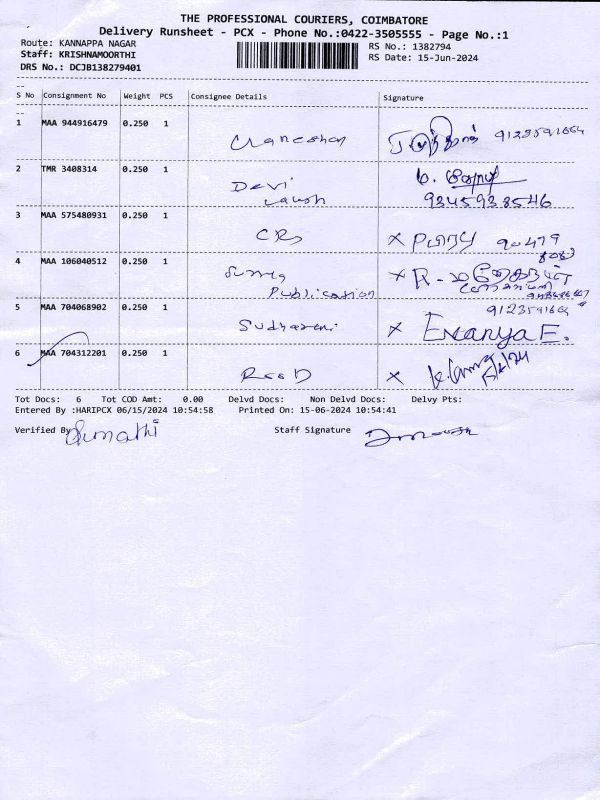 THE PROFESSIONAL COURIERS, COIMBATORE
Delivery Runsheet - PCX - Phone No.:0422-3505555 - Page No.:1
Route: KANNAPPA NAGAR RS No.: 1382794
Staff: KRISHNAMOORTHI RS Date: 15-Jun-2024
DRS No.: DCJB138279401
S No Consignment No Weight PCS Consignee Details Signature
1 MAA 944916479 0.250 1
2 TMR 3408314 0.250 1 Devi 9345938546
3 MAA 575480931 0.250 1 CRS x 90479
4 MAA 106040512 0.250 1 x R-
Publication
5 MAA 704068902 0.250 1 x E.
6 MAA 704312201 0.250 1 x
Tot Docs: 6 Tot COD Amt: 0.00 Delvd Docs: Non Delvd Docs: Delvy Pts:
Entered By :HARIPCX 06/15/2024 10:54:58 Printed On: 15-06-2024 10:54:41
Verified By Sumathi Staff Signature